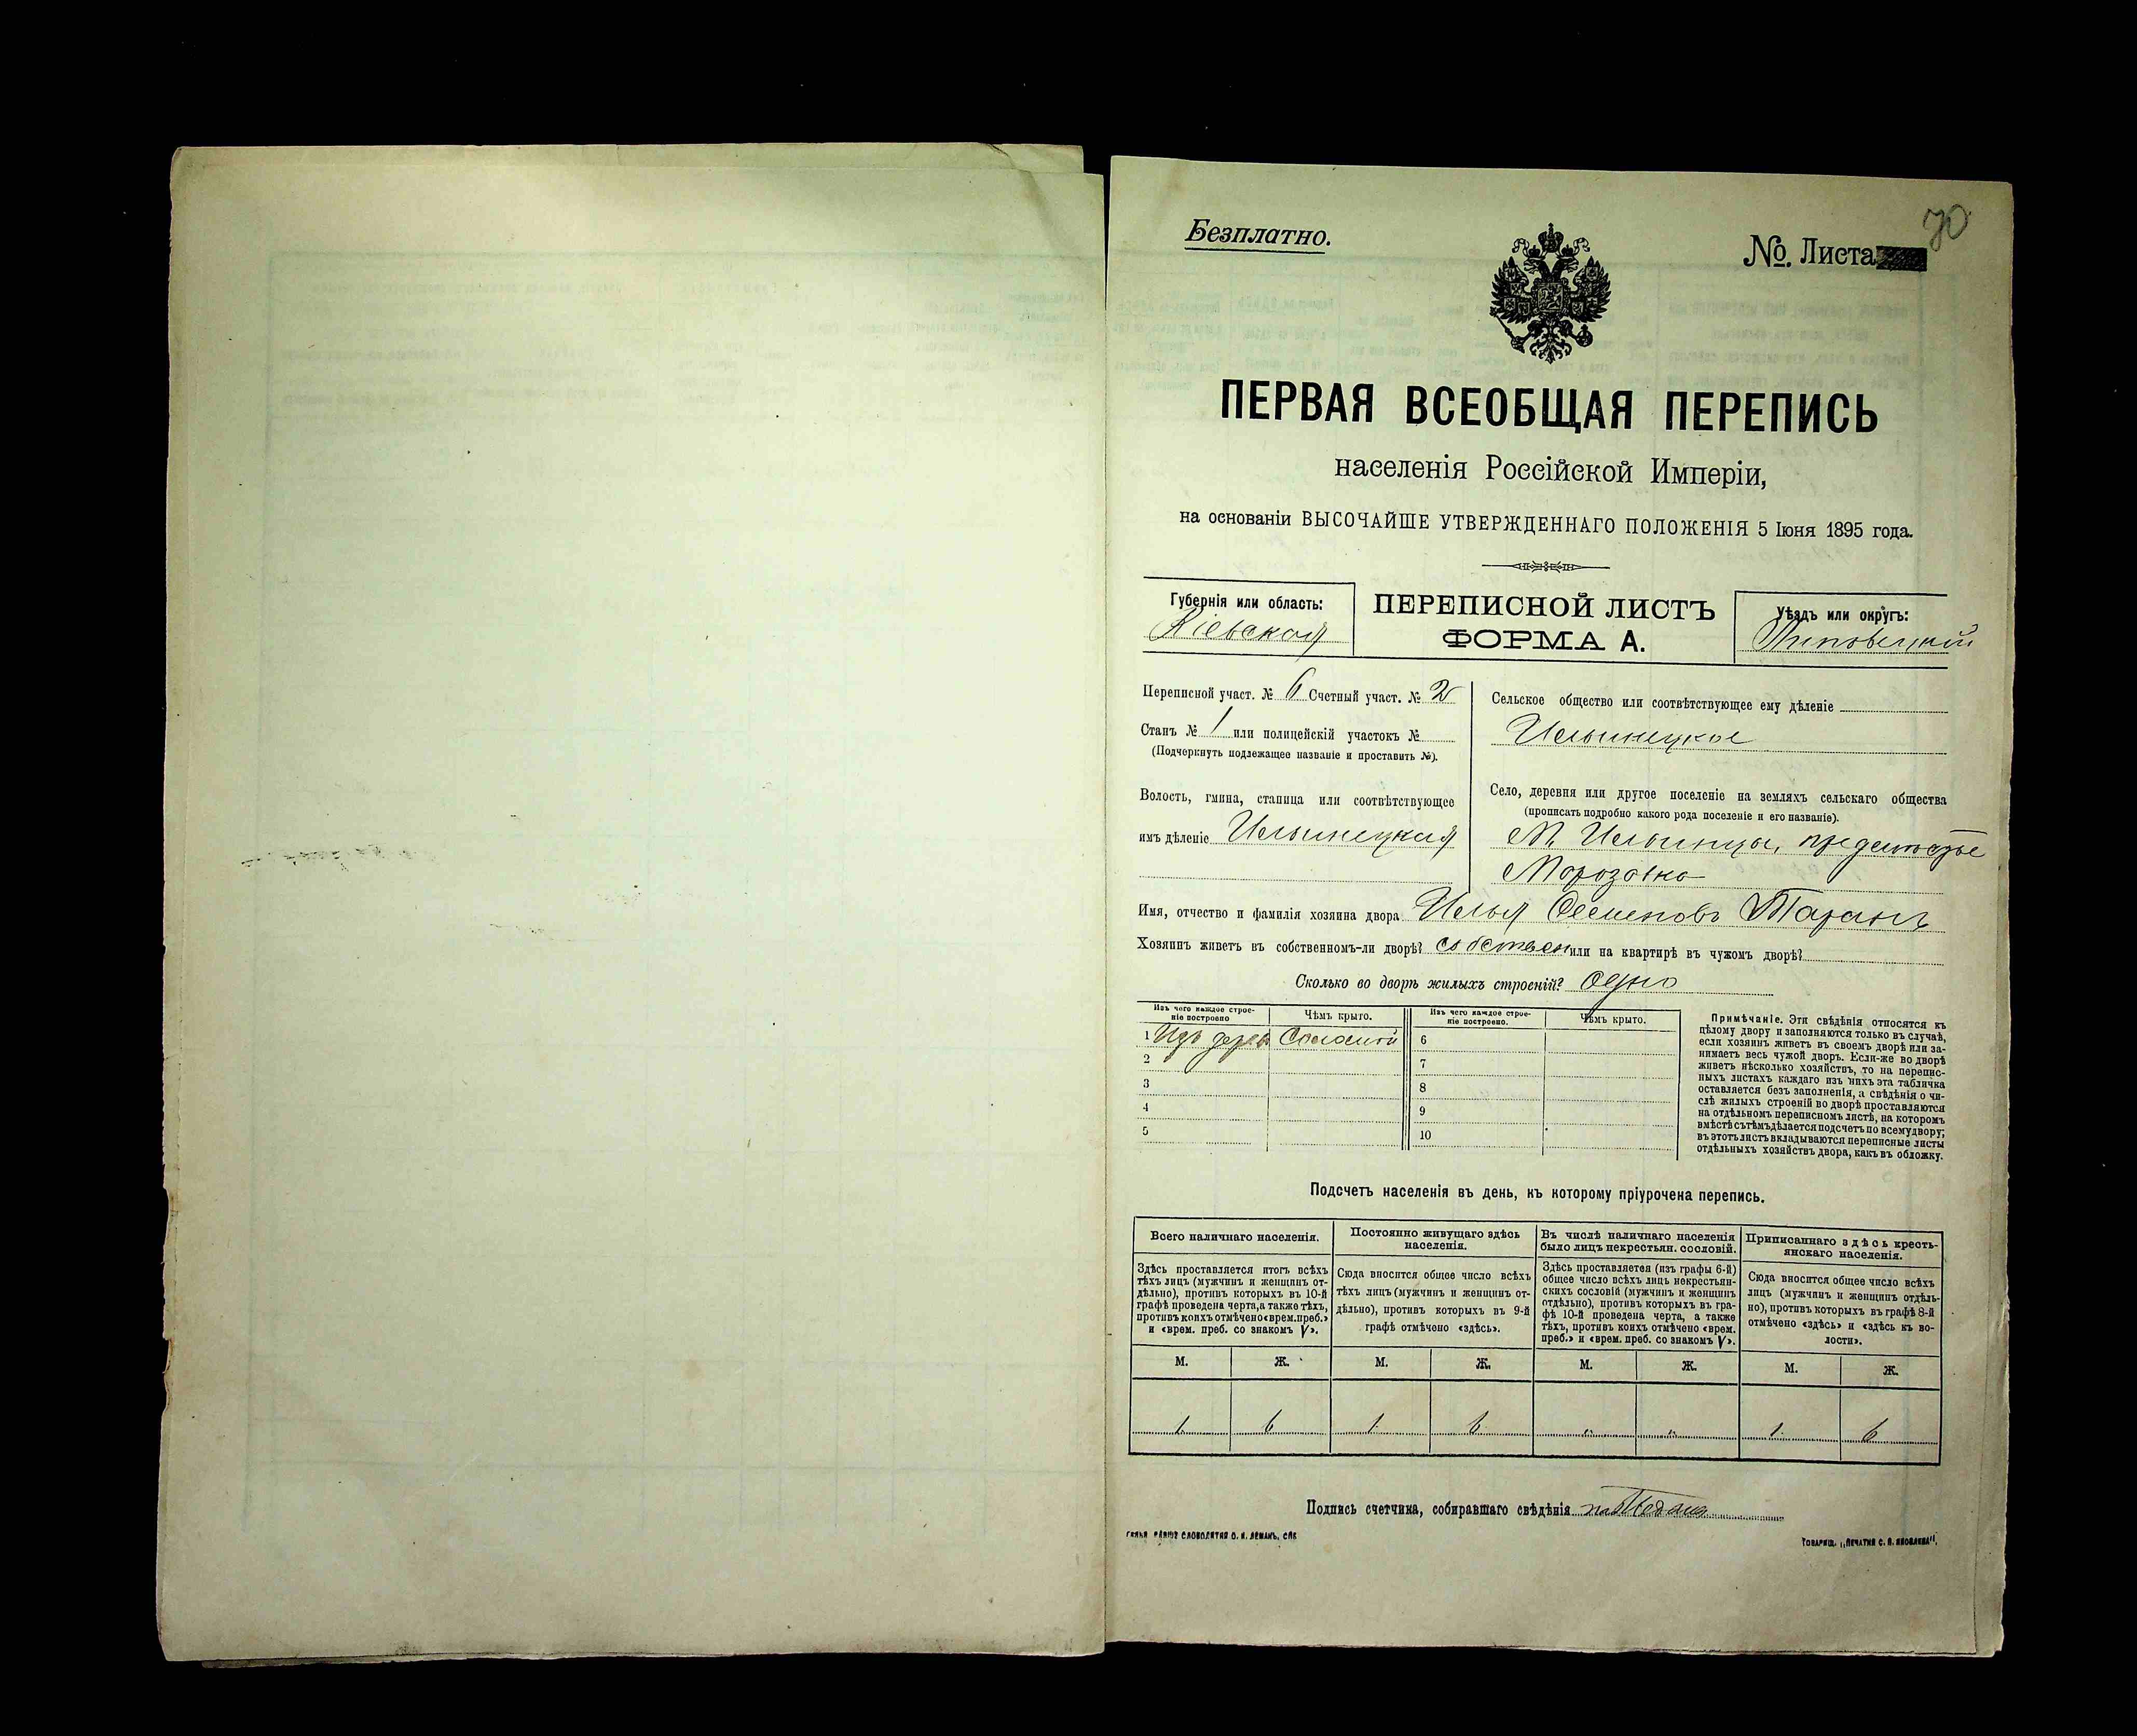 70
Безплатно.
№. Листа
ПЕРВАЯ ВСЕОБЩАЯ ПЕРЕПИСЬ
населенія Россійской Имперіи,
на основаніи ВЫСОЧАЙШЕ УТВЕРЖДЕННАГО ПОЛОЖЕНІЯ 5 Іюня 1895 года.
Губернія или область:
Кіевская
ПЕРЕПИСНОЙ ЛИСТЪ
ФОРМА А.
Уѣздъ или округъ:
Липовецкій
Переписной участ. № 6 Счетный участ. № 2
Станъ № 1 или полицейскій участокъ №
(Подчеркнуть подлежащее названіе и проставить №).
Волость, гмина, станица или соотвѣтствующее
имъ дѣленіе Ильинецкая
Сельское общество или соотвѣтствующее ему дѣленіе
Ильинецкое
Село, деревня или другое поселеніе на земляхъ сельскаго общества
(прописать подробно какого рода поселеніе и его названіе).
М. Ильинцы, предмѣстье
Морозовка
Имя, отчество и фамилія хозяина двора Илья Семеновъ Таранъ
Хозяинъ живетъ въ собственномъ-ли дворѣ? собствен или на квартирѣ въ чужомъ дворѣ?
Сколько во дворѣ жилыхъ строеній? Одно
Изъ чего каждое строе-
ніе построено
Чѣмъ крыто.
Изъ чего каждое строе-
ніе построено.
Чѣмъ крыто.
1 Изъ дерев Соломой 6
2 7
3 8
4 9
5 10
Примѣчаніе. Эти свѣдѣнія относятся къ
цѣлому двору и заполняются только въ случаѣ,
если хозяинъ живетъ въ своемъ дворѣ или за-
нимаетъ весь чужой дворъ. Если-же во дворѣ
живетъ нѣсколько хозяйствъ, то на перепис-
ныхъ листахъ каждаго изъ нихъ эта табличка
оставляется безъ заполненія, а свѣдѣнія о чи-
слѣ жилыхъ строеній во дворѣ проставляются
на отдѣльномъ переписномъ листѣ, на которомъ
вмѣстѣ съ тѣмъ дѣлается подсчетъ по всему двору;
въ этотъ листъ вкладываются переписные листы
отдѣльныхъ хозяйствъ двора, какъ въ обложку.
Подсчетъ населенія въ день, къ которому пріурочена перепись.
Всего наличнаго населенія.
Здѣсь проставляется итогъ всѣхъ
тѣхъ лицъ (мужчинъ и женщинъ от-
дѣльно), противъ которыхъ въ 10-й
графѣ проведена черта, а также тѣхъ,
противъ коихъ отмѣчено «врем. преб.»
и «врем. преб. со знакомъ V».
Постоянно живущаго здѣсь
населенія.
Сюда вносится общее число всѣхъ
тѣхъ лицъ (мужчинъ и женщинъ от-
дѣльно), противъ которыхъ въ 9-й
графѣ отмѣчено «здѣсь».
Въ числѣ наличнаго населенія
было лицъ некрестьян. сословій.
Здѣсь проставляется (изъ графы 6-й)
общее число всѣхъ лицъ некрестьян-
скихъ сословій (мужчинъ и женщинъ
отдѣльно), противъ которыхъ въ гра-
фѣ 10-й проведена черта, а также
тѣхъ, противъ коихъ отмѣчено «врем.
преб.» и «врем. преб. со знакомъ V».
Приписаннаго здѣсь кресть-
янскаго населенія.
Сюда вносится общее число всѣхъ
лицъ (мужчинъ и женщинъ отдѣль-
но), противъ которыхъ въ графѣ 8-й
отмѣчено «здѣсь» и «здѣсь къ во-
лости».
М. Ж. М. Ж. М. Ж. М. Ж.
1. 6 1. 6 „ „ 1. 6
Подпись счетчика, собиравшаго свѣдѣнія
СЛОВОЛИТНЯ О. И. ЛЕМАНЪ, СПБ
ТОВАРИЩ. „ПЕЧАТНЯ С. П. ЯКОВЛЕВА".